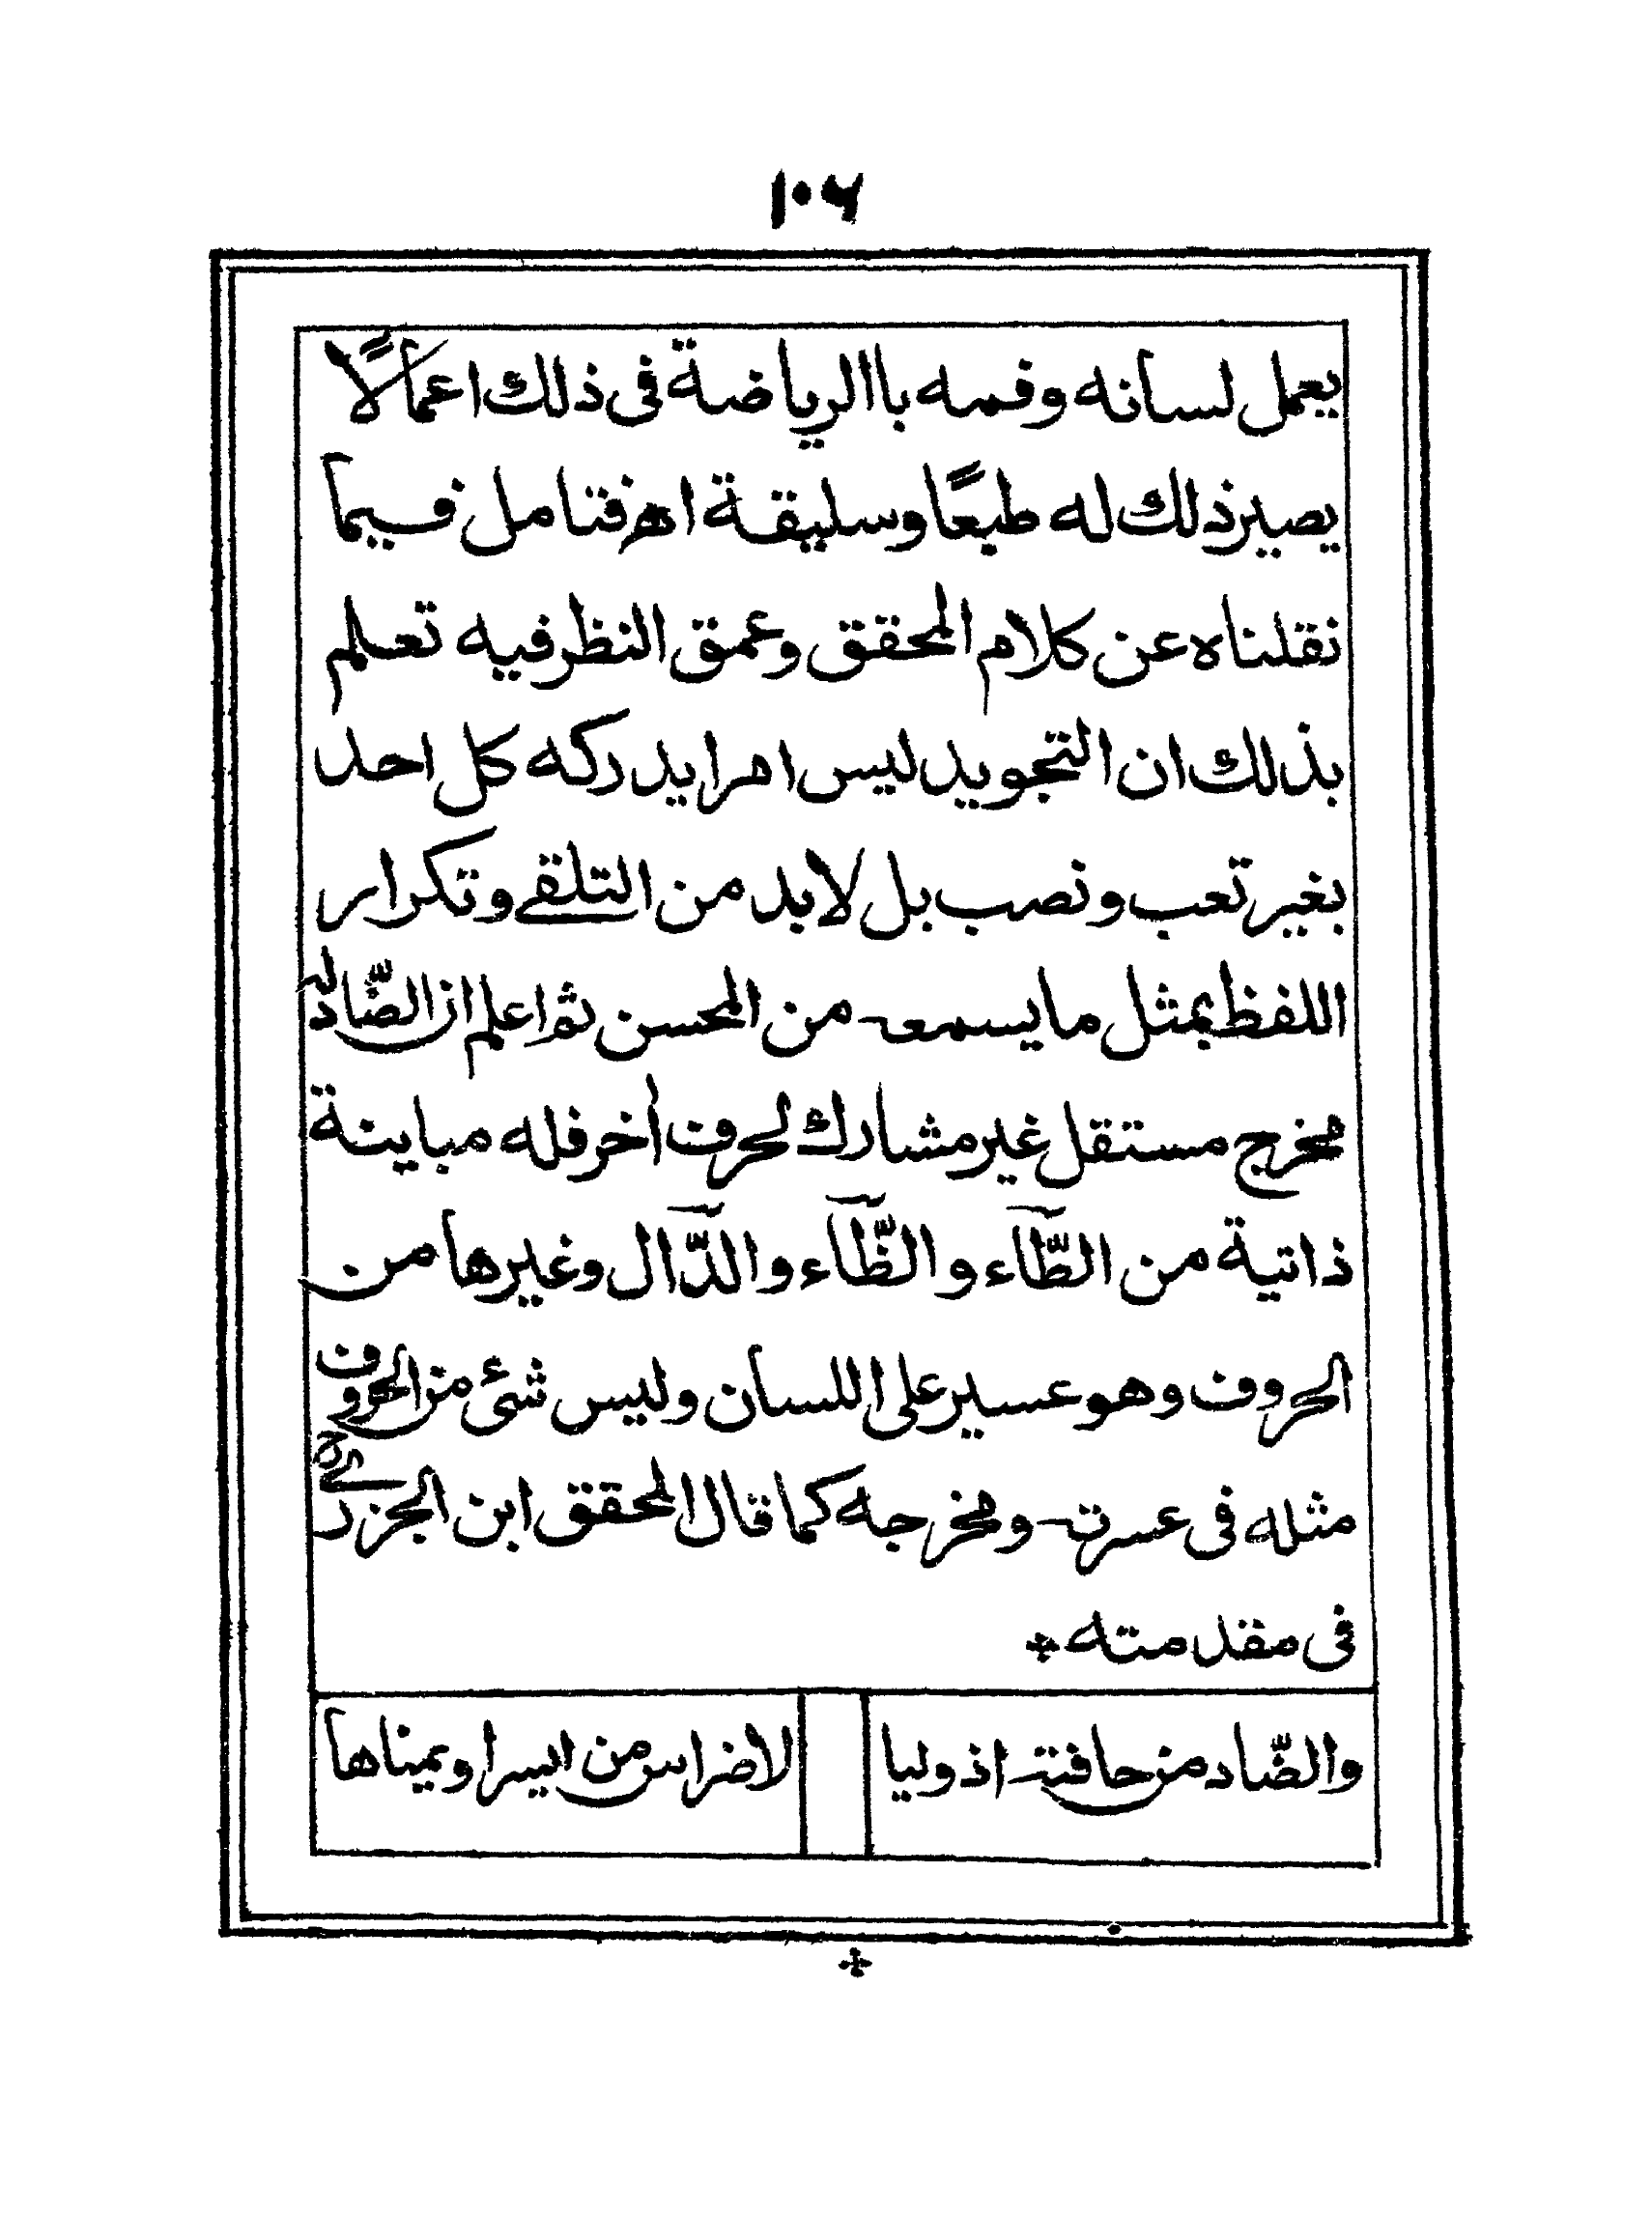 ١٠٦
يعمل لسانه وفمه باالرياضة فى ذلك اعمالًا
يصير ذلك له طبعًا وسليقة اھ فتامل فيما
نقلناه عن كلام المحقق وعمق النظر فيه تعلم
بذلك ان التجويد ليس امرا يدركه كل احد
بغير تعب ونصب بل لابد من التلقے وتكرار
اللفظ بمثل مايسمعہ من المحسن ثم اعلم ان الضّاد له
مخرج مستقل غير مشارك لحرف أخر فله مباينة
ذاتية من الطّآء والظّآء والدّآل وغيرها من
الحروف وهو عسير على اللسان وليس شئ من الحروف
مثله فى عسرتہ ومخرجه كما قال المحقق ابن الجزرے رح
فى مقدمته
والضّاد من حافتہ اذ وليا
الاضراس من ايسرا ويمناها